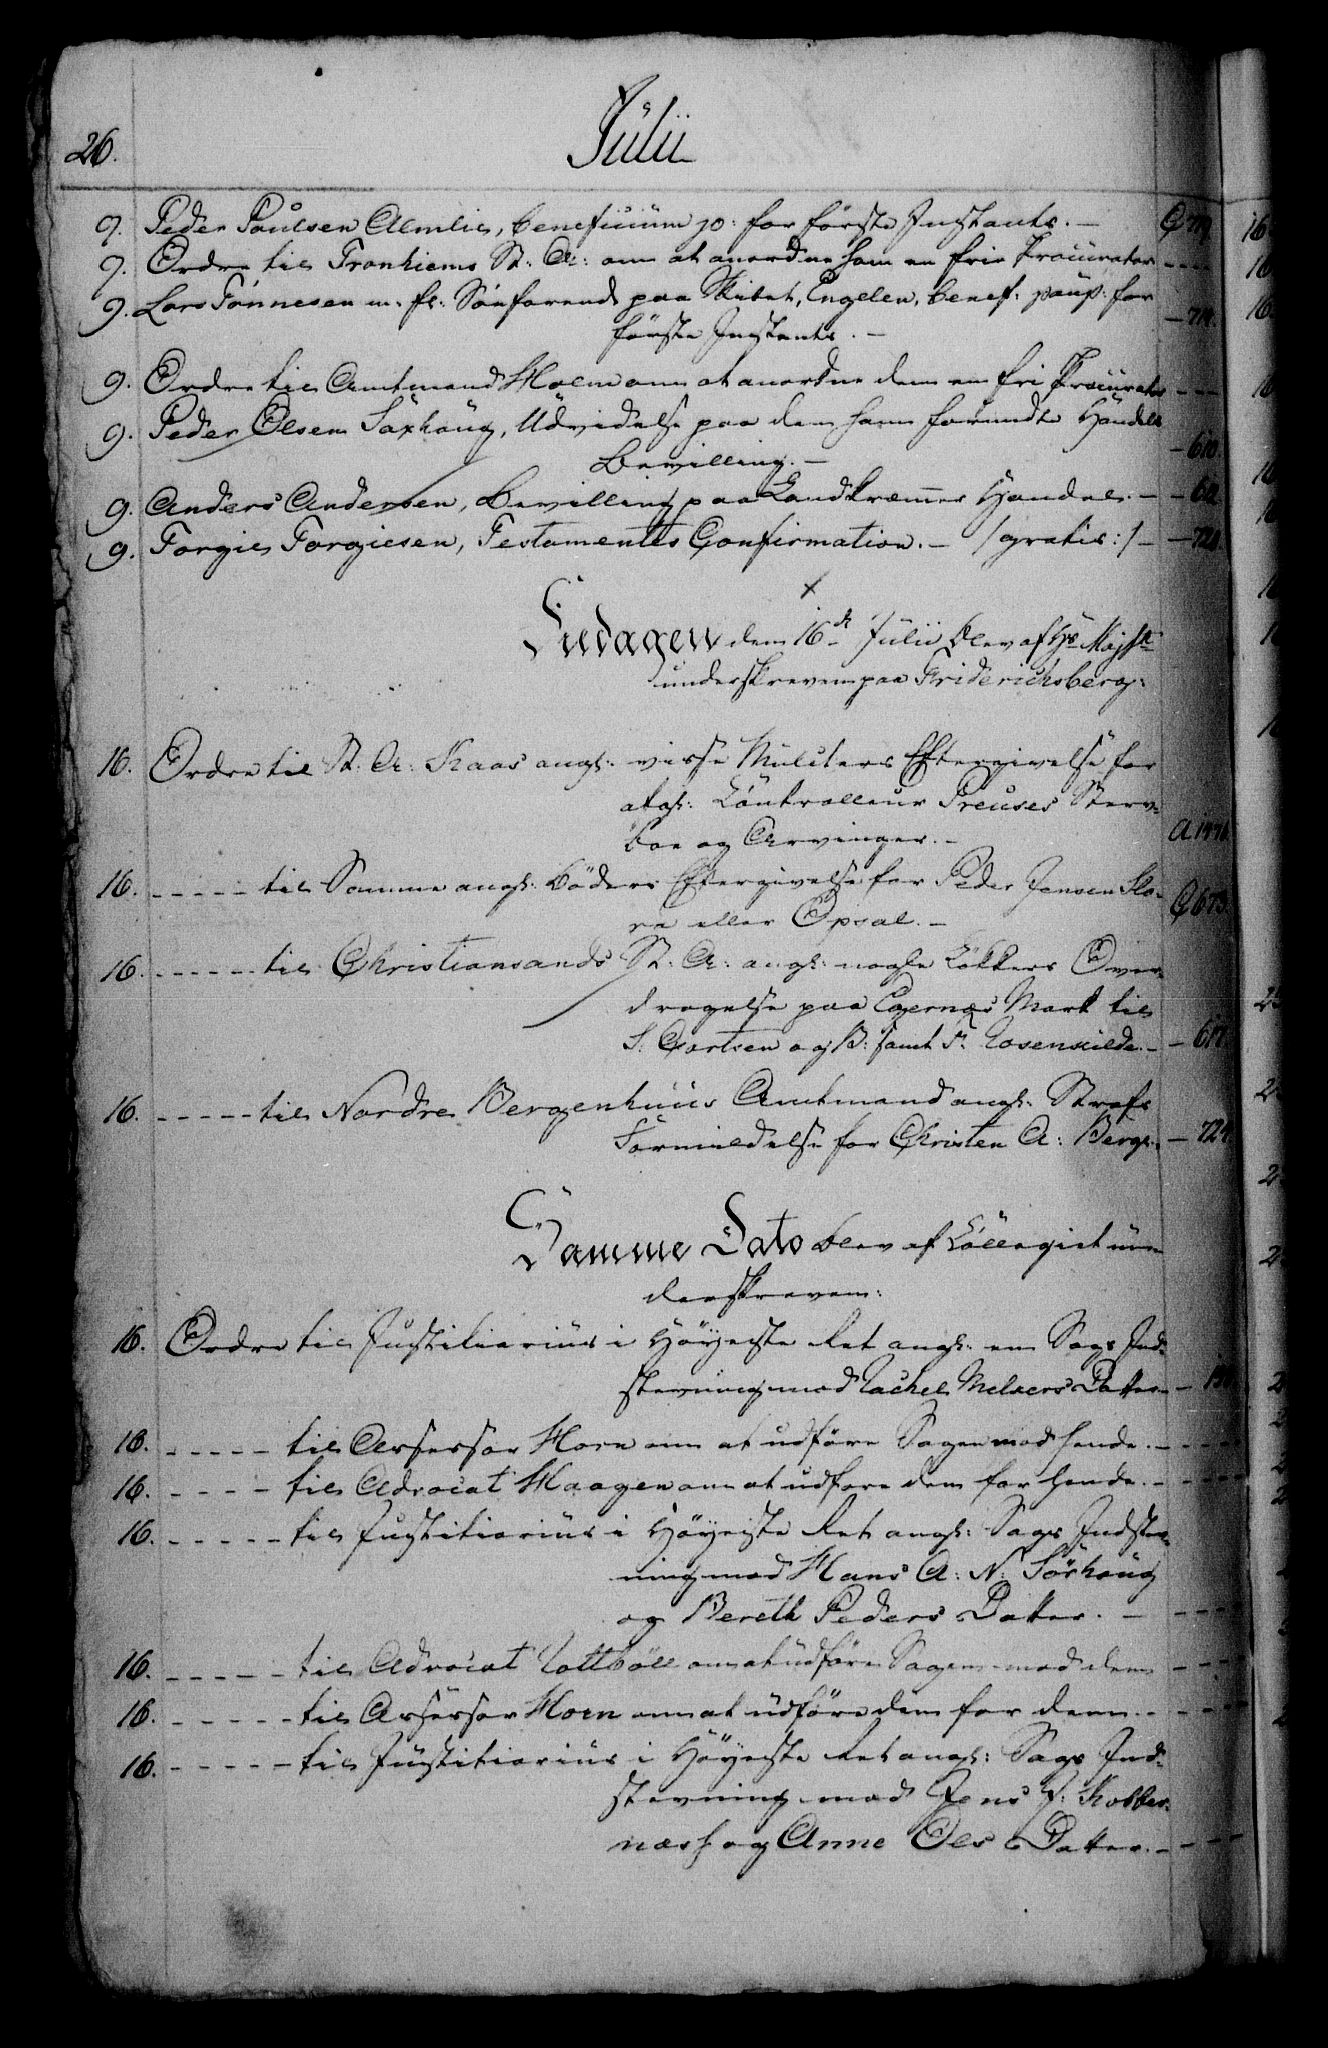 26.
Julii
9. Peder Poulsen Almlie, beneficium p: for første Instants. — C
9. Ordre til Tronhiems St: A: om at anordne ham en frie Procurator ----
9. Lars Tønnesen m. fl: Søefarende paa Skibet, Engelen, benef: paup: for
første Instants. — — 714.
9. Ordre til Amtmand Holm om at anordne dem en fri Procurator ---
9. Peder Olsen Saxhaug, Udvidelse paa den ham forundte Handels
Bevilling. — — 610
9. Anders Andersen, Bevilling paa Landkræmmer Handel. —
9. Torgie Torgiesen, Testamentes Confirmation. — /:gratis:/ —
Fredagen den 16de Julii blev af Hs Majst
underskreven paa Friderichsberg:
16. Ordre til St: A: Kaas angl: visse Mulcters Eftergivelse for
afgl: Controlleur Preuses Sterv-
boe og Arvinger. —
16. ----- til Samme angl: Bøders Eftergivelse for Peder Jensen Slo-
re eller Opsal. — C 673
16. ------ til Christiansands St: A: angl: nogle Løkkers Over-
dragelse paa Egernæs Mark til
S. og B: samt P. Rosenkilde. — — 617.
16. ----- til Nordre Bergenhuus Amtmand angl: Straf
Formildelse for Christen A: Berge. — 724
Samme Dato blev af Collegiet un-
derskreven:
16. Ordre til Justitiarius i Høyeste Ret angl: en Sags Ind-
stevning mod Rachel Nielsers Datter —
16. ----- til Assessor Horn om at udføre Sagen mod hende. — ----
16. ---- til Advocat Haagen om at udføre den for hende. — ----
16. ----- til Justitiarius i Høyeste Ret angl: Sags Indstev-
ning mod Hans A: N: Sørhaug
og Bereth Peders Datter. — ----
16. ----- til Advocat Rottbøll om at udføre Sagen mod dem ---
16. ----- til Assessor Horn om at udføre den for dem. — ---
16. ----- til Justitiarius i Høyeste Ret angl: Sags Ind-
stevning mod Jens J: Kobber-
næss og Anne Ols Datter. — ---